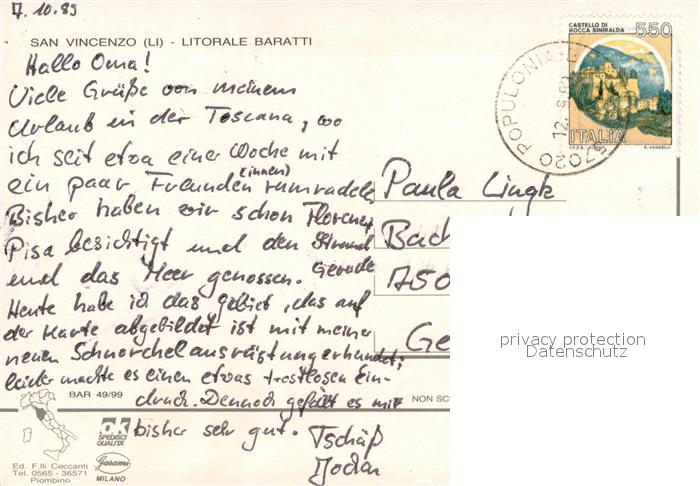 7.10.89
SAN VINCENZO (LI) - LITORALE BARATTI
CASTELLO DI
ROCCA SINIBALDA
550
ITALIA
I.P.Z.S. - ROMA
E. VANGELLI
57020 POPULONIA
Hallo Oma!
Viele Grüße von meinem
Urlaub in der Toscana, wo
ich seit etwa einer Woche mit
ein paar Freunden (innen) rumradele
Bisher haben wir schon Florenz,
Pisa besichtigt und den Strand
und das Meer genossen. Gerade
Heute habe ich das Gebiet, das auf
der Karte abgebildet ist mit meiner
neuen Schnorchelausrüstung erkundet;
leider machte es einen etwas trostlosen Ein-
druck. Dennoch gefällt es mir
bisher sehr gut. Tschüß
Jochen
Paula Lingk
Bach
750
Ge
privacy protection
Datenschutz
BAR 49/99
NON SC
ok
SPEDISCI
QUALITA'
Garami
MILANO
Ed. F.lli Ceccanti
Tel. 0565 - 36571
Piombino